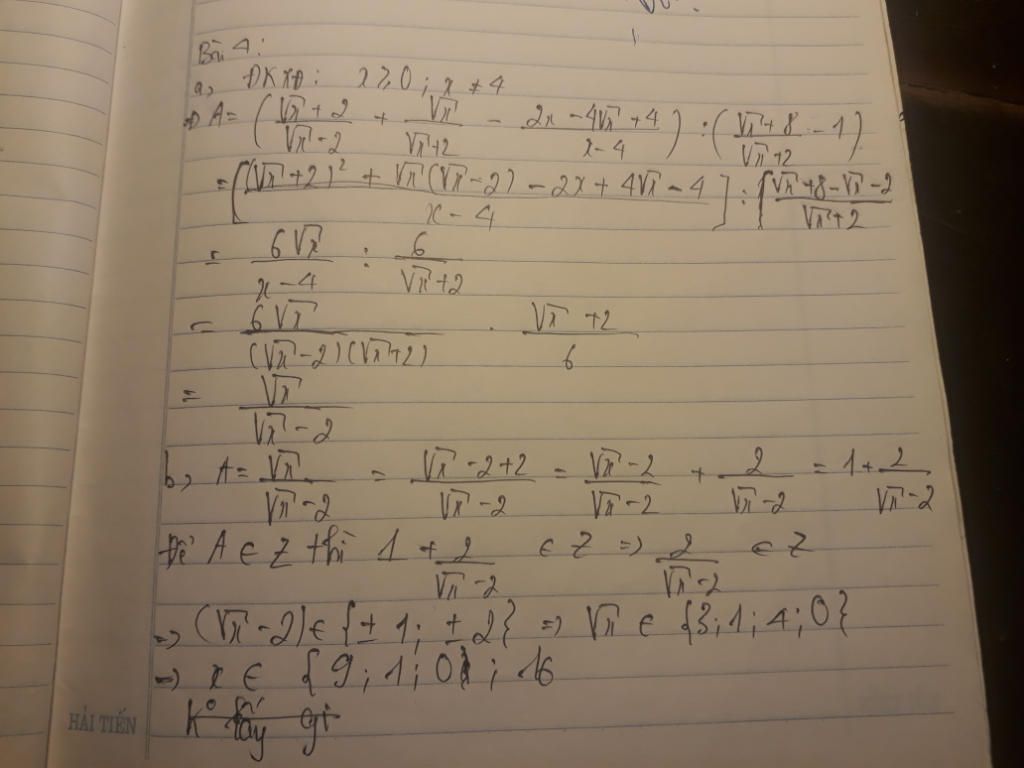 Bài 4:
a, ĐKXĐ: x ≥ 0; x ≠ 4
=> A = ( (√x + 2)/(√x - 2) + √x/(√x+2) - (2x - 4√x + 4)/(x - 4) ) : ( (√x + 8)/(√x + 2) - 1 )
= [ ((√x + 2)² + √x(√x - 2) - 2x + 4√x - 4)/(x - 4) ] : [ (√x + 8 - √x - 2)/(√x + 2)
= 6√x/(x - 4) : 6/(√x + 2)
= 6√x/((√x - 2)(√x + 2)) . (√x + 2)/6
= √x/(√x - 2)
b, A = √x/(√x - 2) = (√x - 2 + 2)/(√x - 2) = (√x - 2)/(√x - 2) + 2/(√x - 2) = 1 + 2/(√x - 2)
Để A ∈ Z thì 1 + 2/(√x - 2) ∈ Z => 2/(√x - 2) ∈ Z
=> (√x - 2) ∈ {± 1; ± 2} => √x ∈ {3; 1; 4; 0}
=> x ∈ {9; 1; 0}; 16
K° lấy gì
HẢI TIẾN